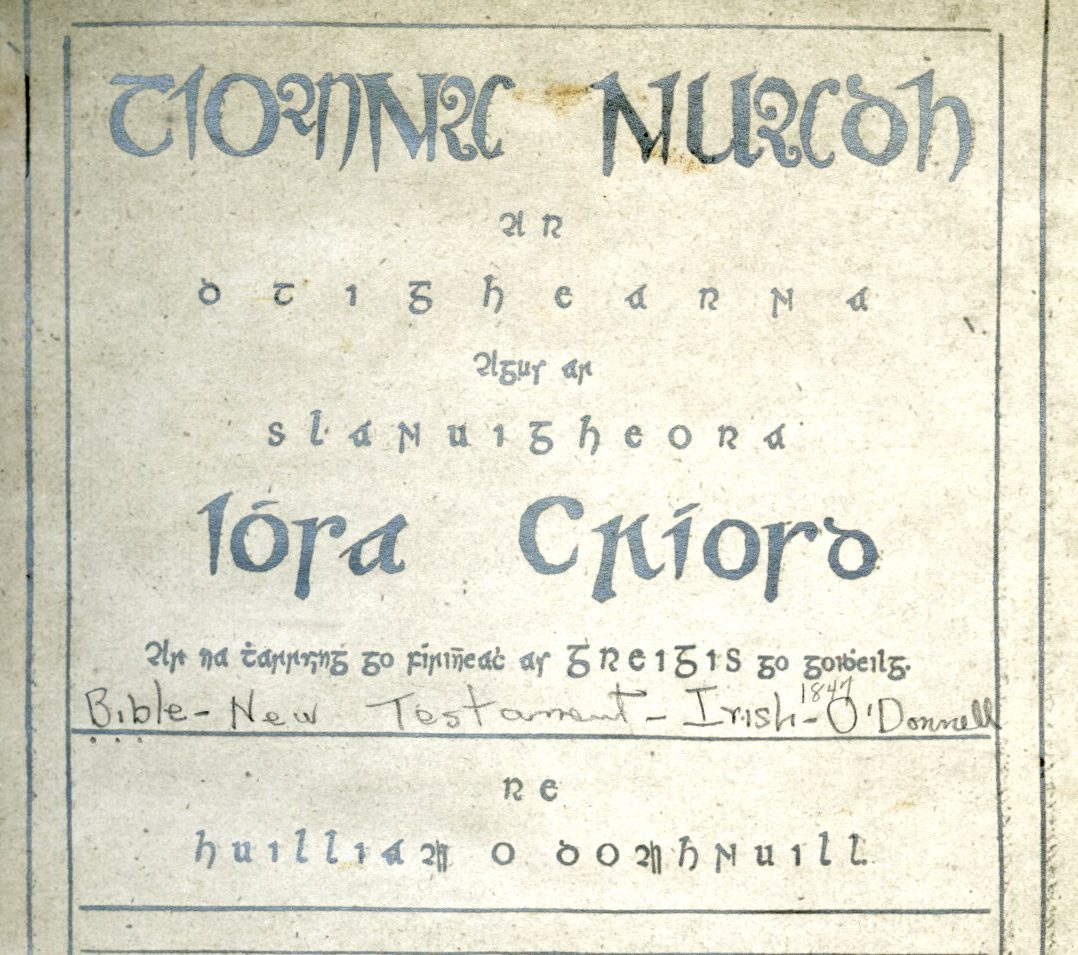 TIOMNA NUADH
AR
DTIGHEARNA
Agus ar
SLANUIGHEORA
Iósa Críosd
Ar na ṫarruing go firin̄eaċ as GREIGIS go goiḋeilg.
1847
Bible - New Testament - Irish - O'Donnell
RE
HUILLIAM O DOMHNUILL.